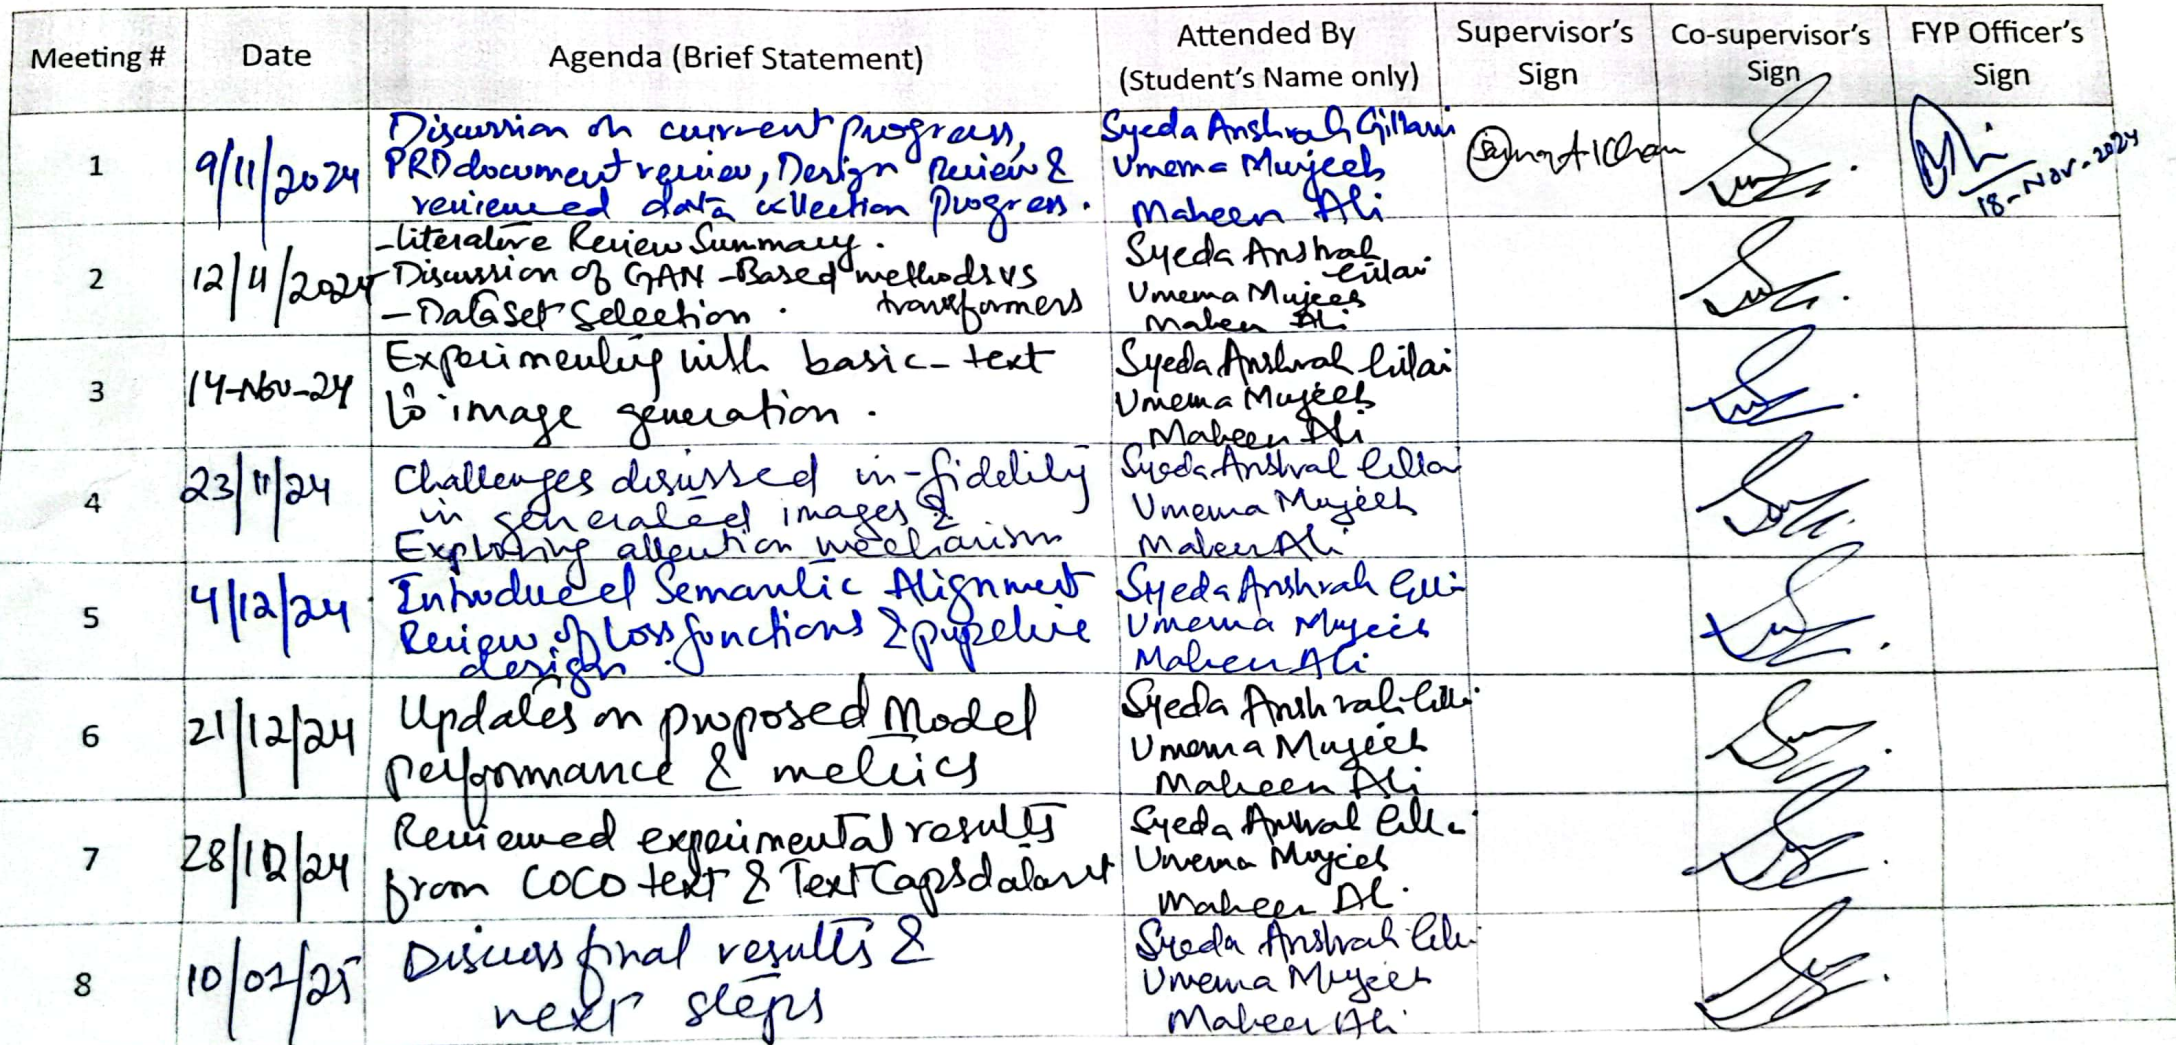 Meeting # Date Agenda (Brief Statement) Attended By (Student's Name only) Supervisor's Sign Co-supervisor's Sign FYP Officer's Sign
1 9/11/2024
Discussion on current progress,
PRD document review, Design Review &
reviewed data collection progress.
Syeda Anshrah Gillani
Umema Mujeeb
Maheen Ali
18-Nov-2024
2 12/11/2024
-Literative Review Summary.
-Discussion of GAN-Based methods vs
transformers
-DataSet Selection.
Syeda Anshrah
Gillani
Umema Mujeeb
Maheen Ali
3 14-Nov-24
Experimenting with basic-text
to image generation.
Syeda Anshrah Gillani
Umema Mujeeb
Maheen Ali
4 23/11/24
Challenges discussed in-fidelity
in generated images &
Exploring attention mechanism
Syeda Anshrah Gillani
Umema Mujeeb
Maheen Ali
5 4/12/24
Introduced Semantic Alignment
Review of loss functions & pipeline
design.
Syeda Anshrah
Umema Mujeeb
Maheen Ali
6 21/12/24
Updates on proposed Model
performance & metrics
Syeda Anshrah
Umema Mujeeb
Maheen Ali
7 28/12/24
Reviewed experimental results
from COCO text & TextCaps dataset
Syeda Anshrah
Umema Mujeeb
Maheen Ali
8 10/01/25
Discuss final results &
next steps
Syeda Anshrah
Umema Mujeeb
Maheen Ali